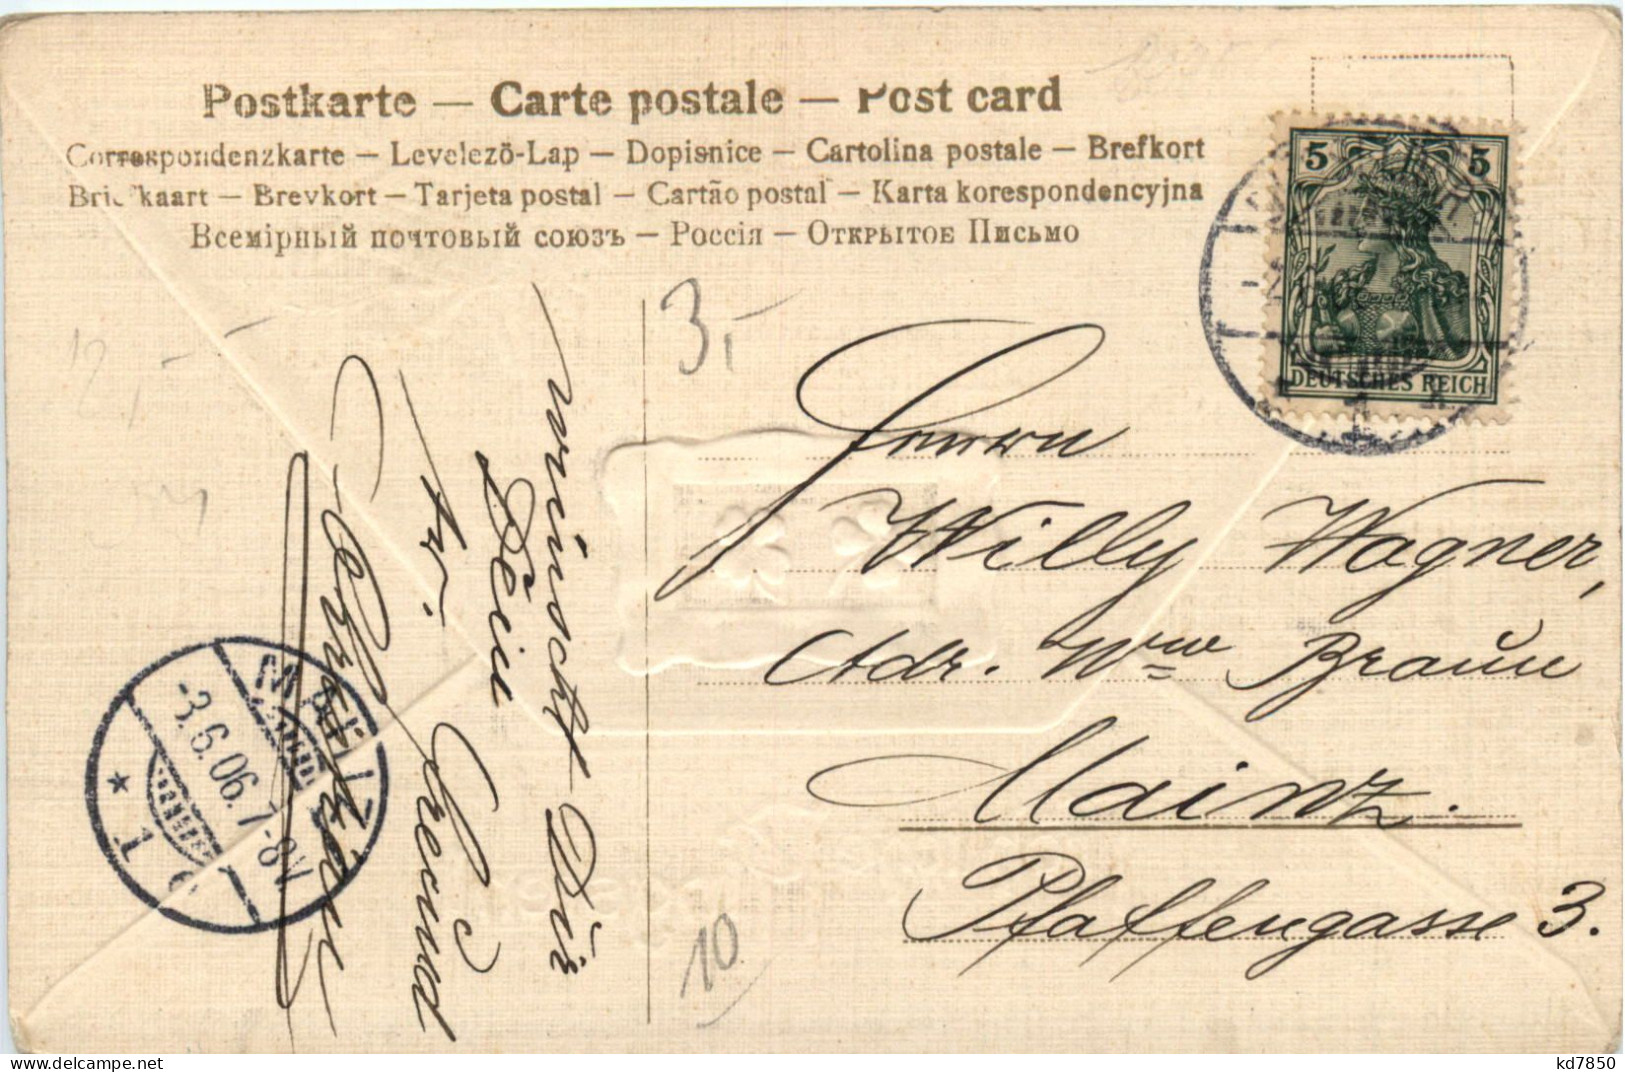 Postkarte — Carte postale — Post card
Correspondenzkarte — Levelezö-Lap — Dopisnice — Cartolina postale — Brefkort
Briefkaart — Brevkort — Tarjeta postal — Cartão postal — Karta korespondencyjna
Всемірный почтовый союзъ — Россія — Открытое Письмо
5 5
DEUTSCHES REICH
3,-
12,-
Herrn
Willy Wagner,
Adr. Wwe Braun
Mainz.
Pfaffengasse 3.
wünscht Dir
Dein
tr. Freund
MAINZ
-3.6.06. 7-8V
* 1
10
kd7850